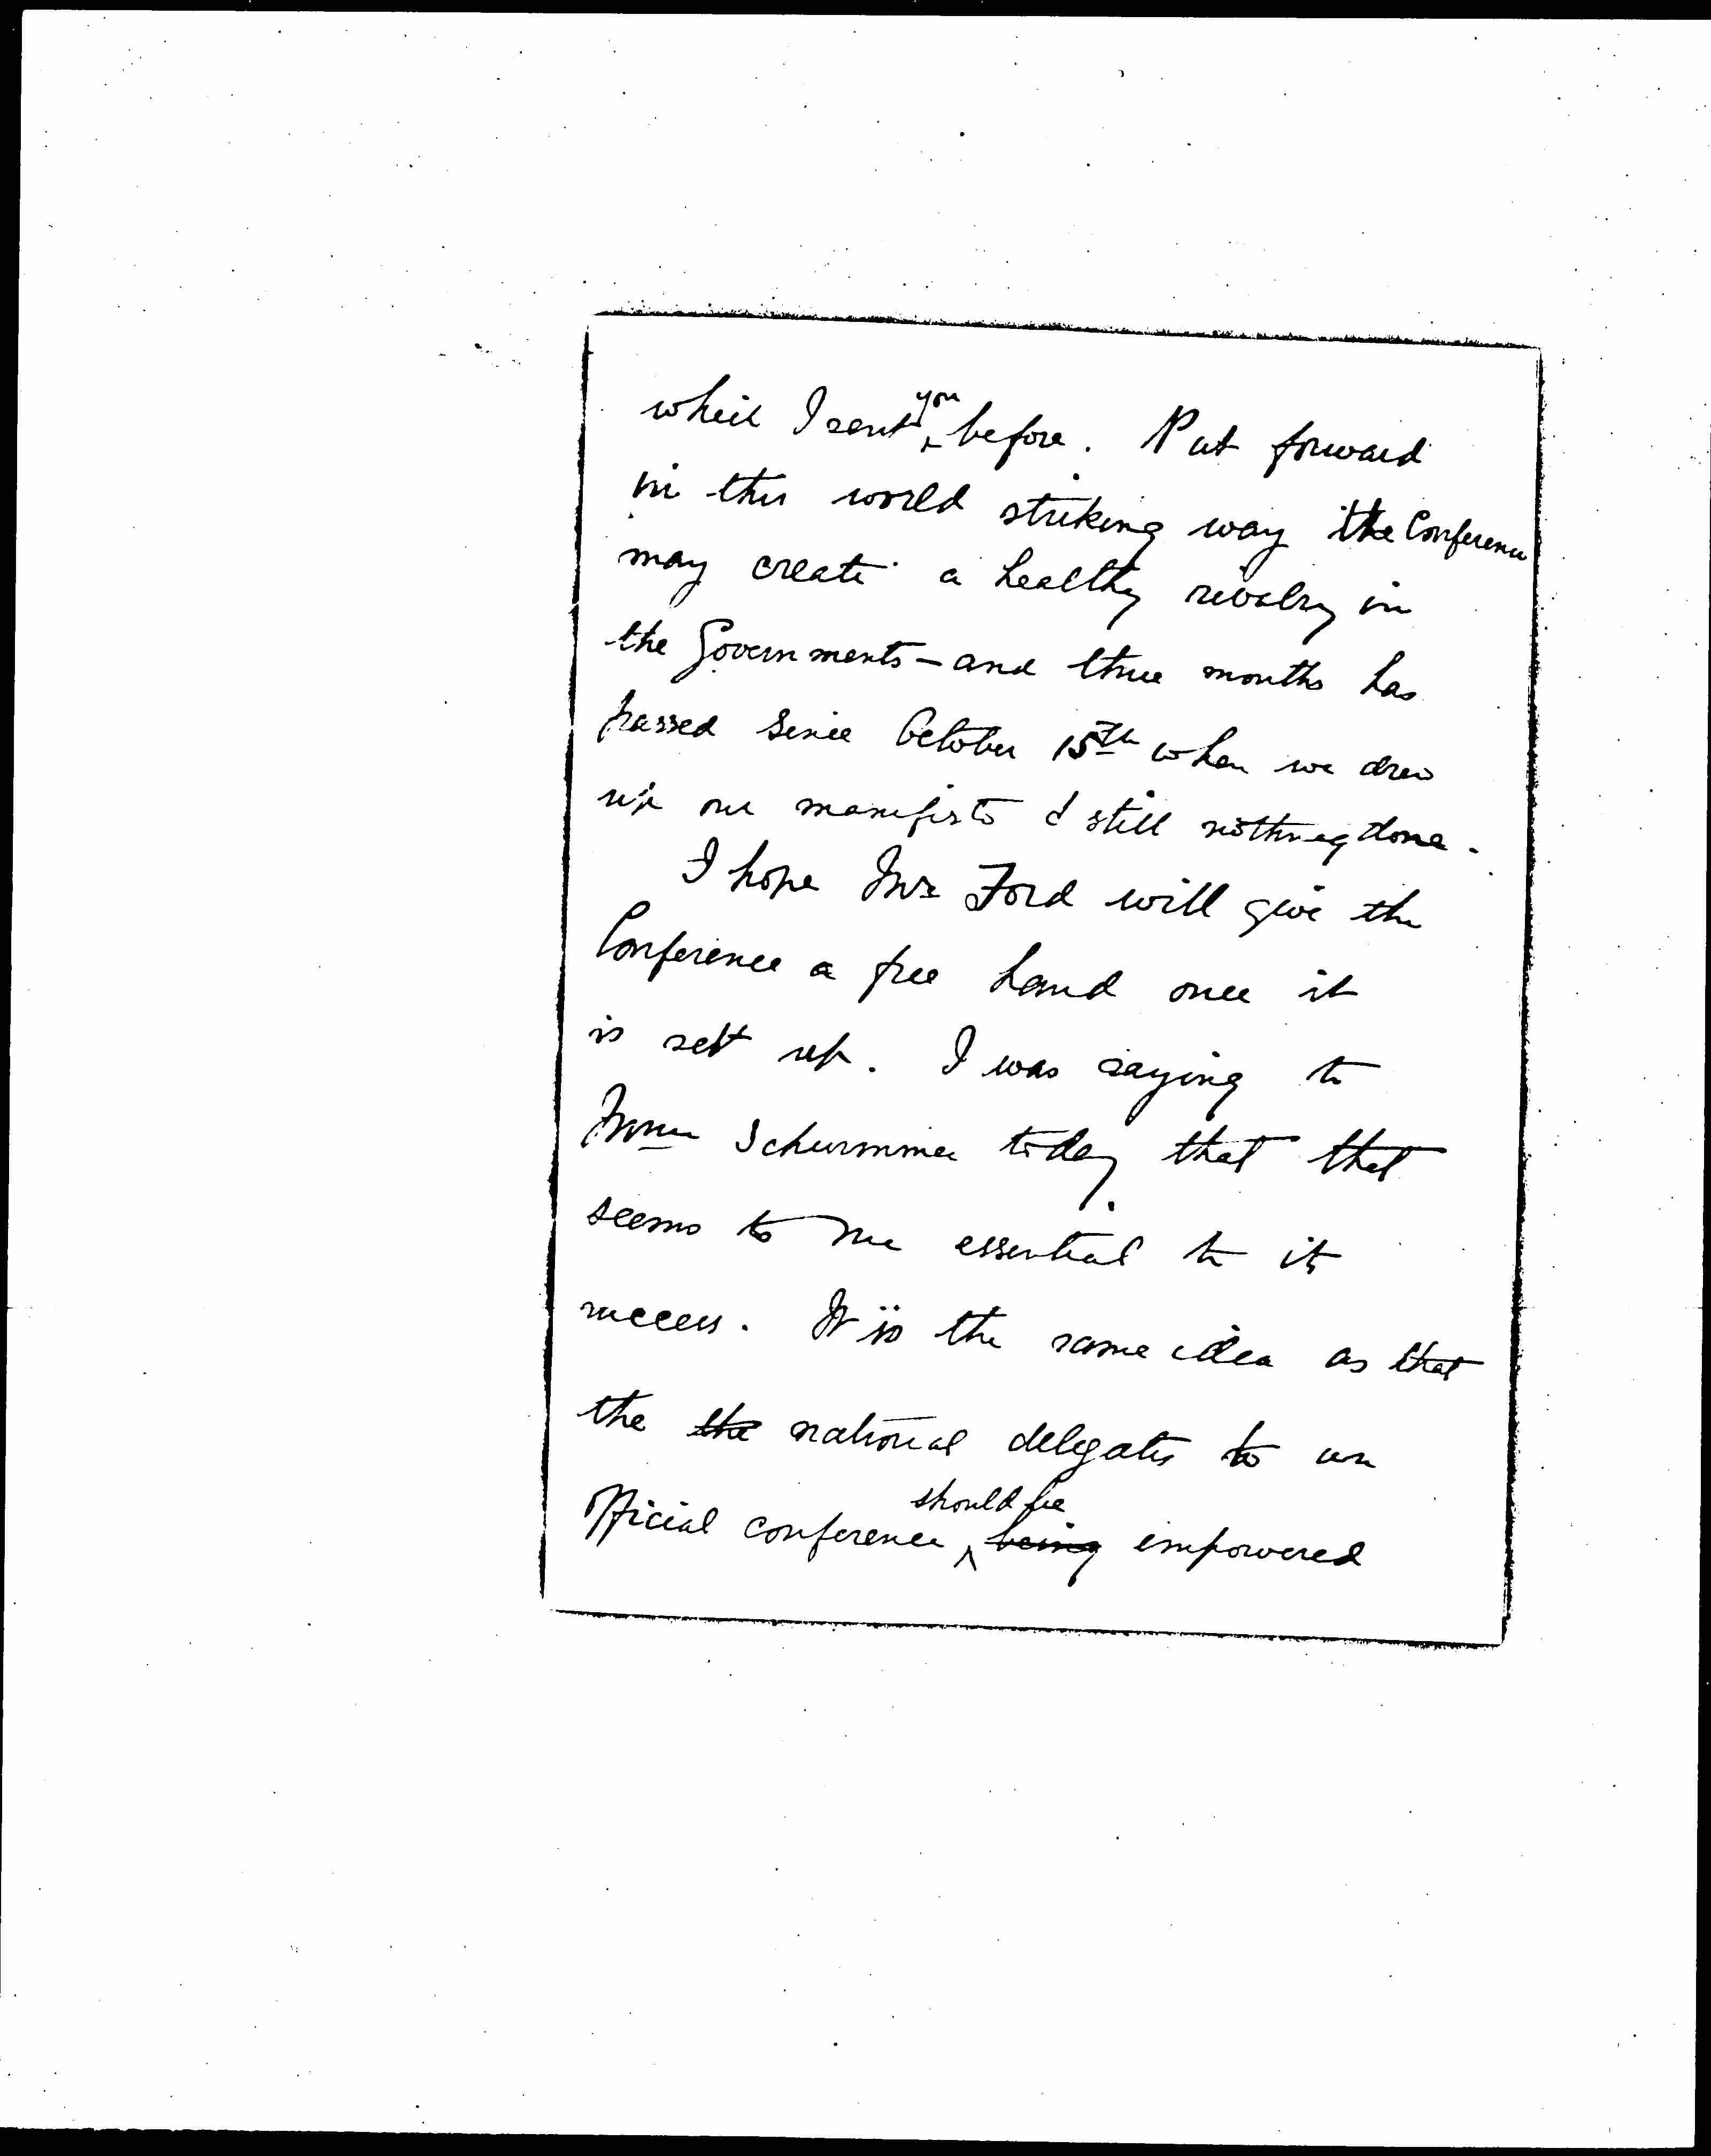 which I sent you before. Put forward
in this world striking way the Conference
may create a healthy rivalry in
the Governments – and three months has
passed since October 15th when we drew
up our manifesto & still nothing done.
I hope Mr Ford will give the
Conference a free hand once it
is set up. I was saying to
Mme Schwimmer today that that
seems to me essential to its
success. It is the same idea as that
the the national delegates to an
official conference should be being empowered